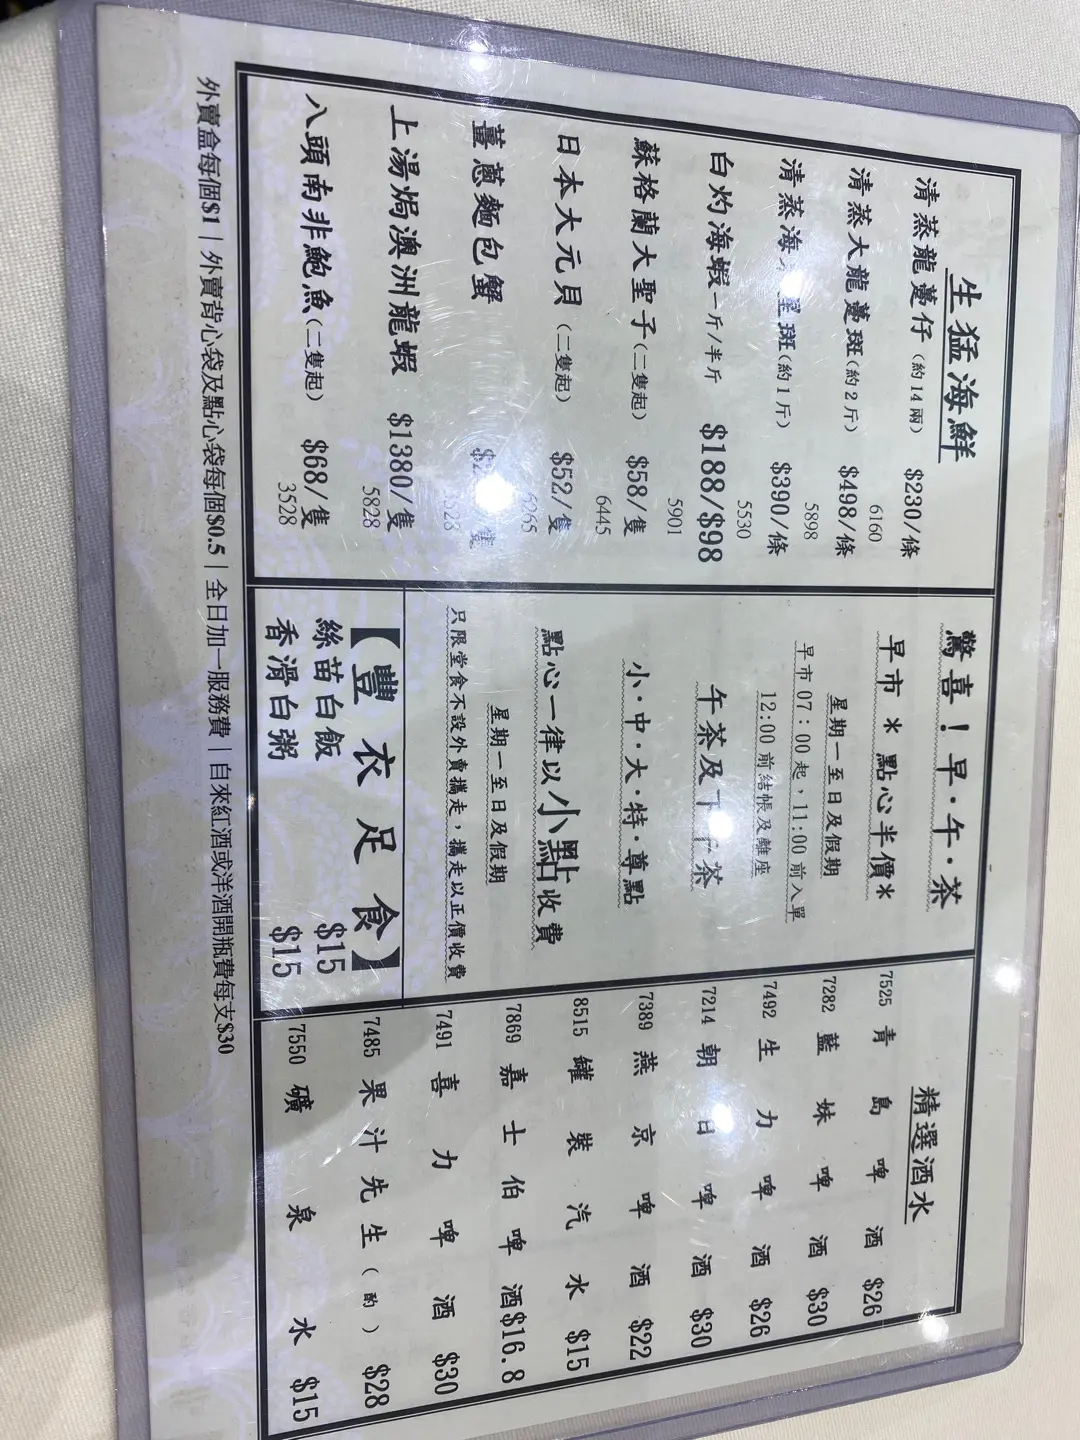 生猛海鮮
清蒸龍躉仔（約14兩） $230/條
6160
清蒸大龍躉斑（約2斤） $498/條
5898
清蒸海 星斑（約1斤） $390/條
5530
白灼海蝦一斤/半斤 $188/$98
5901
蘇格蘭大聖子（二隻起） $58/隻
6445
日本大元貝（二隻起） $52/隻
6265
薑蔥麵包蟹 隻
上湯焗澳洲龍蝦 $1380/隻
5828
八頭南非鮑魚（二隻起） $68/隻
3528
驚喜！早．午．茶
早市 * 點心半價*
星期一至日及假期
早市07：00起，11:00前入單
12:00前結帳及離座
午茶及下午茶
小．中．大．特．尊點
點心一律以小點收費
星期一至日及假期
只限堂食不設外賣攜走，攜走以正價收費
【豐衣足食】
絲苗白飯 $15
香滑白粥 $15
精選酒水
7525 青島啤酒 $26
7282 藍妹啤酒 $30
7492 生力啤酒 $26
7214 朝日啤酒 $30
7389 燕京啤酒 $22
8515 罐裝汽水 $15
7869 嘉士伯啤酒 $16.8
7491 喜力啤酒 $30
7485 果汁先生（酌） $28
7550 礦泉水 $15
外賣盒每個$1｜外賣背心袋及點心袋每個$0.5｜全日加一服務費｜自來紅酒或洋酒開瓶費每支$30